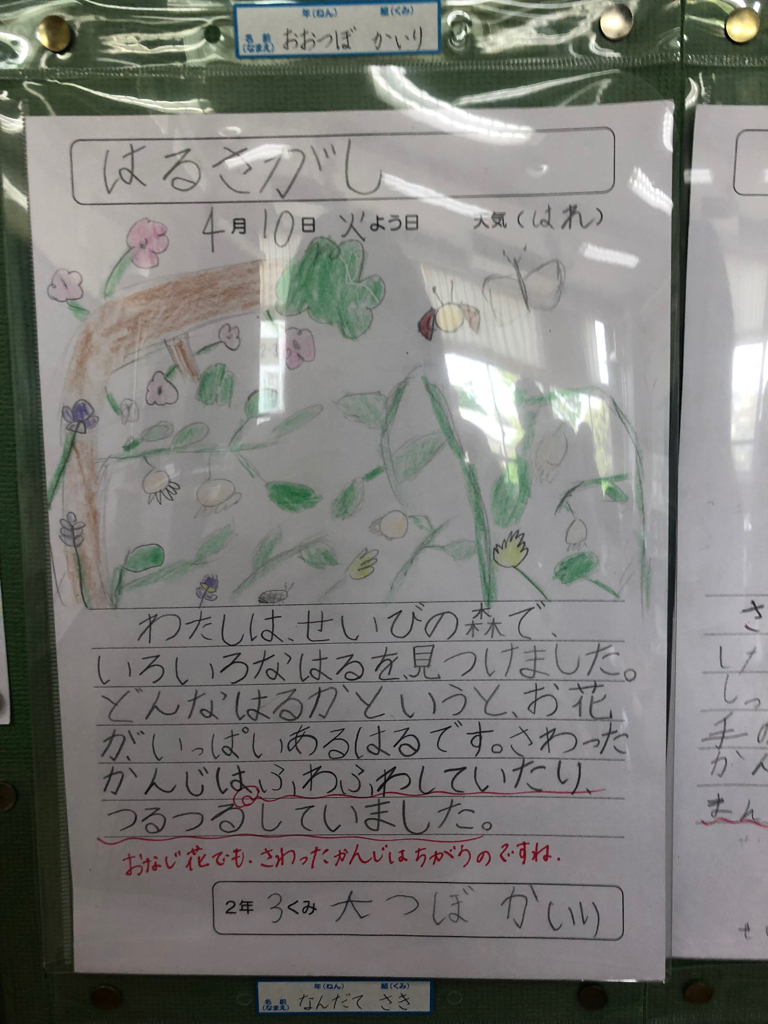 年(ねん) 組(くみ)
名前(なまえ) おおつぼ かいり
はるさがし
4月10日 火よう日 天気(はれ)
わたしは、せいびの森で、
いろいろなはるを、見つけました。
どんなはるかというと、お花
が、いっぱいあるはるです。さわった
かんじは、ふわふわしていたり、
つるつるしていました。
おなじ花でも、さわったかんじはちがうのですね。
2年 3くみ 大つぼ かいり
年(ねん) 組(くみ)
名前(なまえ) なんだて さき
さ
し
手の
かん